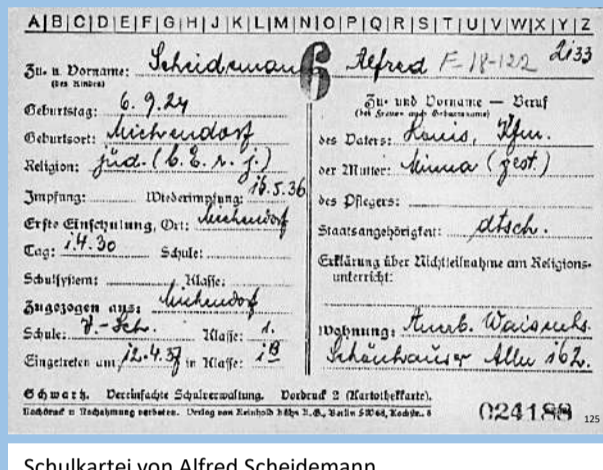 A|B|C|D|E|F|G|H|J|K|L|M|N|O|P|Q|R|S|T|U|V|W|X|Y|Z
Zu- u. Vorname: Scheidemann Alfred F-18-122 2133
(des Kindes)
6
Geburtstag: 6.9.24
Geburtsort: Michendorf
Religion: jüd. (b. E. r. j.)
Impfung: Wiederimpfung: 16.5.36
Erste Einschulung, Ort: Michendorf
Tag: 1.4.30 Schule:
Schulsystem: Klasse:
Zugezogen aus: Michendorf
Schule: V.-Sch. Klasse: 1.
Eingetreten am: 12.4.37 in Klasse:
Zu- und Vorname — Beruf
(bei Frauen auch Geburtsname)
des Vaters: Kfm.
der Mutter: Minna (gest.)
des Pflegers:
Staatsangehörigkeit: dtsch.
Erklärung über Nichtteilnahme am Religions-
unterricht:
Wohnung: Auerb. Waisenhs.
Schönhauser Allee 162.
Schwarz. Vereinfachte Schulverwaltung. Vordruck 2 (Kartothekkarte).
Nachdruck u. Nachahmung verboten. Verlag von Reinhold Kühn A.G., Berlin SW68, Kochstr. 6
024188
125
Schulkartei von Alfred Scheidemann